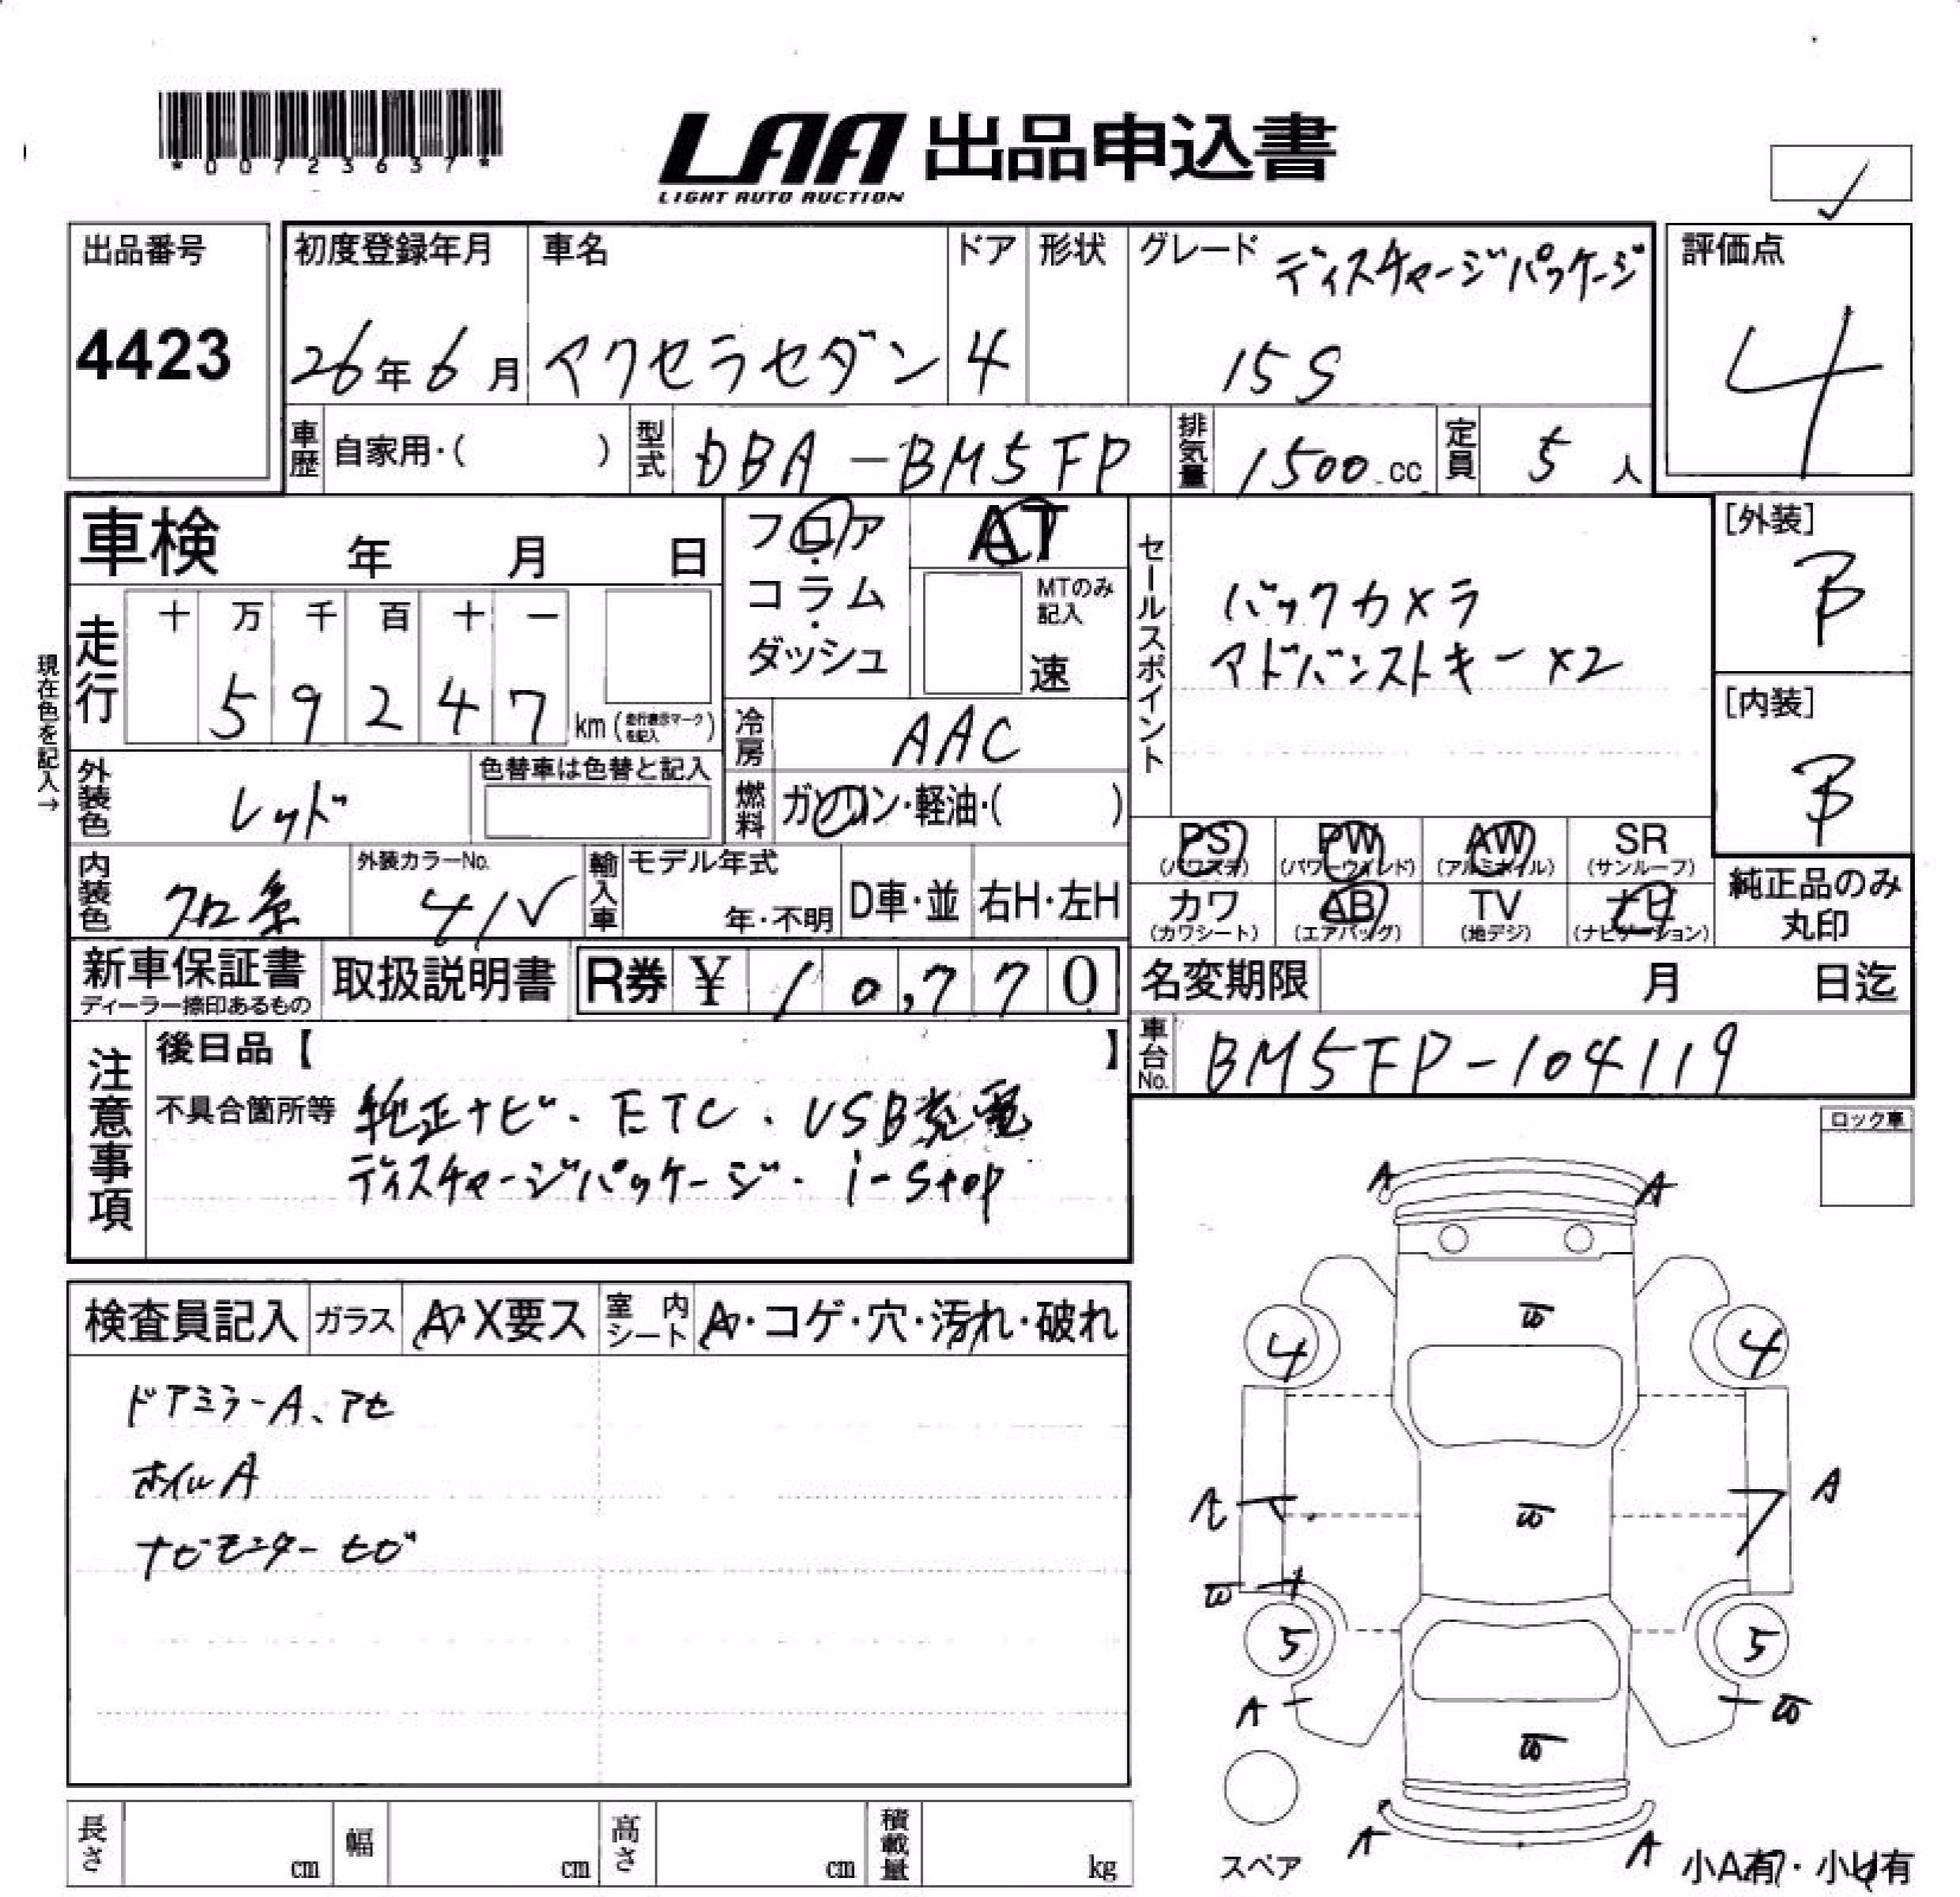 *00723637*
LAA 出品申込書
LIGHT AUTO AUCTION
出品番号
4423
初度登録年月
26年6月
車名
アクセラセダン
ドア
4
形状
グレード ディスチャージパッケージ
15S
評価点
4
車歴 自家用・( )
型式 DBA-BM5FP
排気量 1500.cc
定員 5人
車検 年 月 日
フロア・
コラム・
ダッシュ
AT
MTのみ
記入
速
セールスポイント
バックカメラ
アドバンストキー×2
[外装]
B
[内装]
B
現在色を記入→
走行
十 万 千 百 十 一
5 9 2 4 7 km(走行表示マークを記入)
冷房 AAC
外装色 レッド
色替車は色替と記入
燃料 ガソリン・軽油・( )
PS
(パワステ)
PW
(パワーウィンド)
AW
(アルミホイル)
SR
(サンルーフ)
カワ
(カワシート)
AB
(エアバッグ)
TV
(地デジ)
ナビ
(ナビゲーション)
純正品のみ
丸印
内装色 クロ系
外装カラーNo.
41V
輸入車
モデル年式
年・不明
D車・並
右H・左H
新車保証書
ディーラー捺印あるもの
取扱説明書
R券 ¥10,770
名変期限 月 日迄
車台No. BM5FP-104119
注意事項
後日品【 】
不具合箇所等 純正ナビ・ETC・USB充電
ディスチャージパッケージ・i-stop
ロック車
検査員記入
ガラス A・X要ス
室内シート A・コゲ・穴・汚れ・破れ
ドアミラーA、アセ
ホイルA
ナビモニターヒビ
A A
4 4
A
5 5
A
A A
スペア
小A有・小U有
長さ cm
幅 cm
高さ cm
積載量 kg